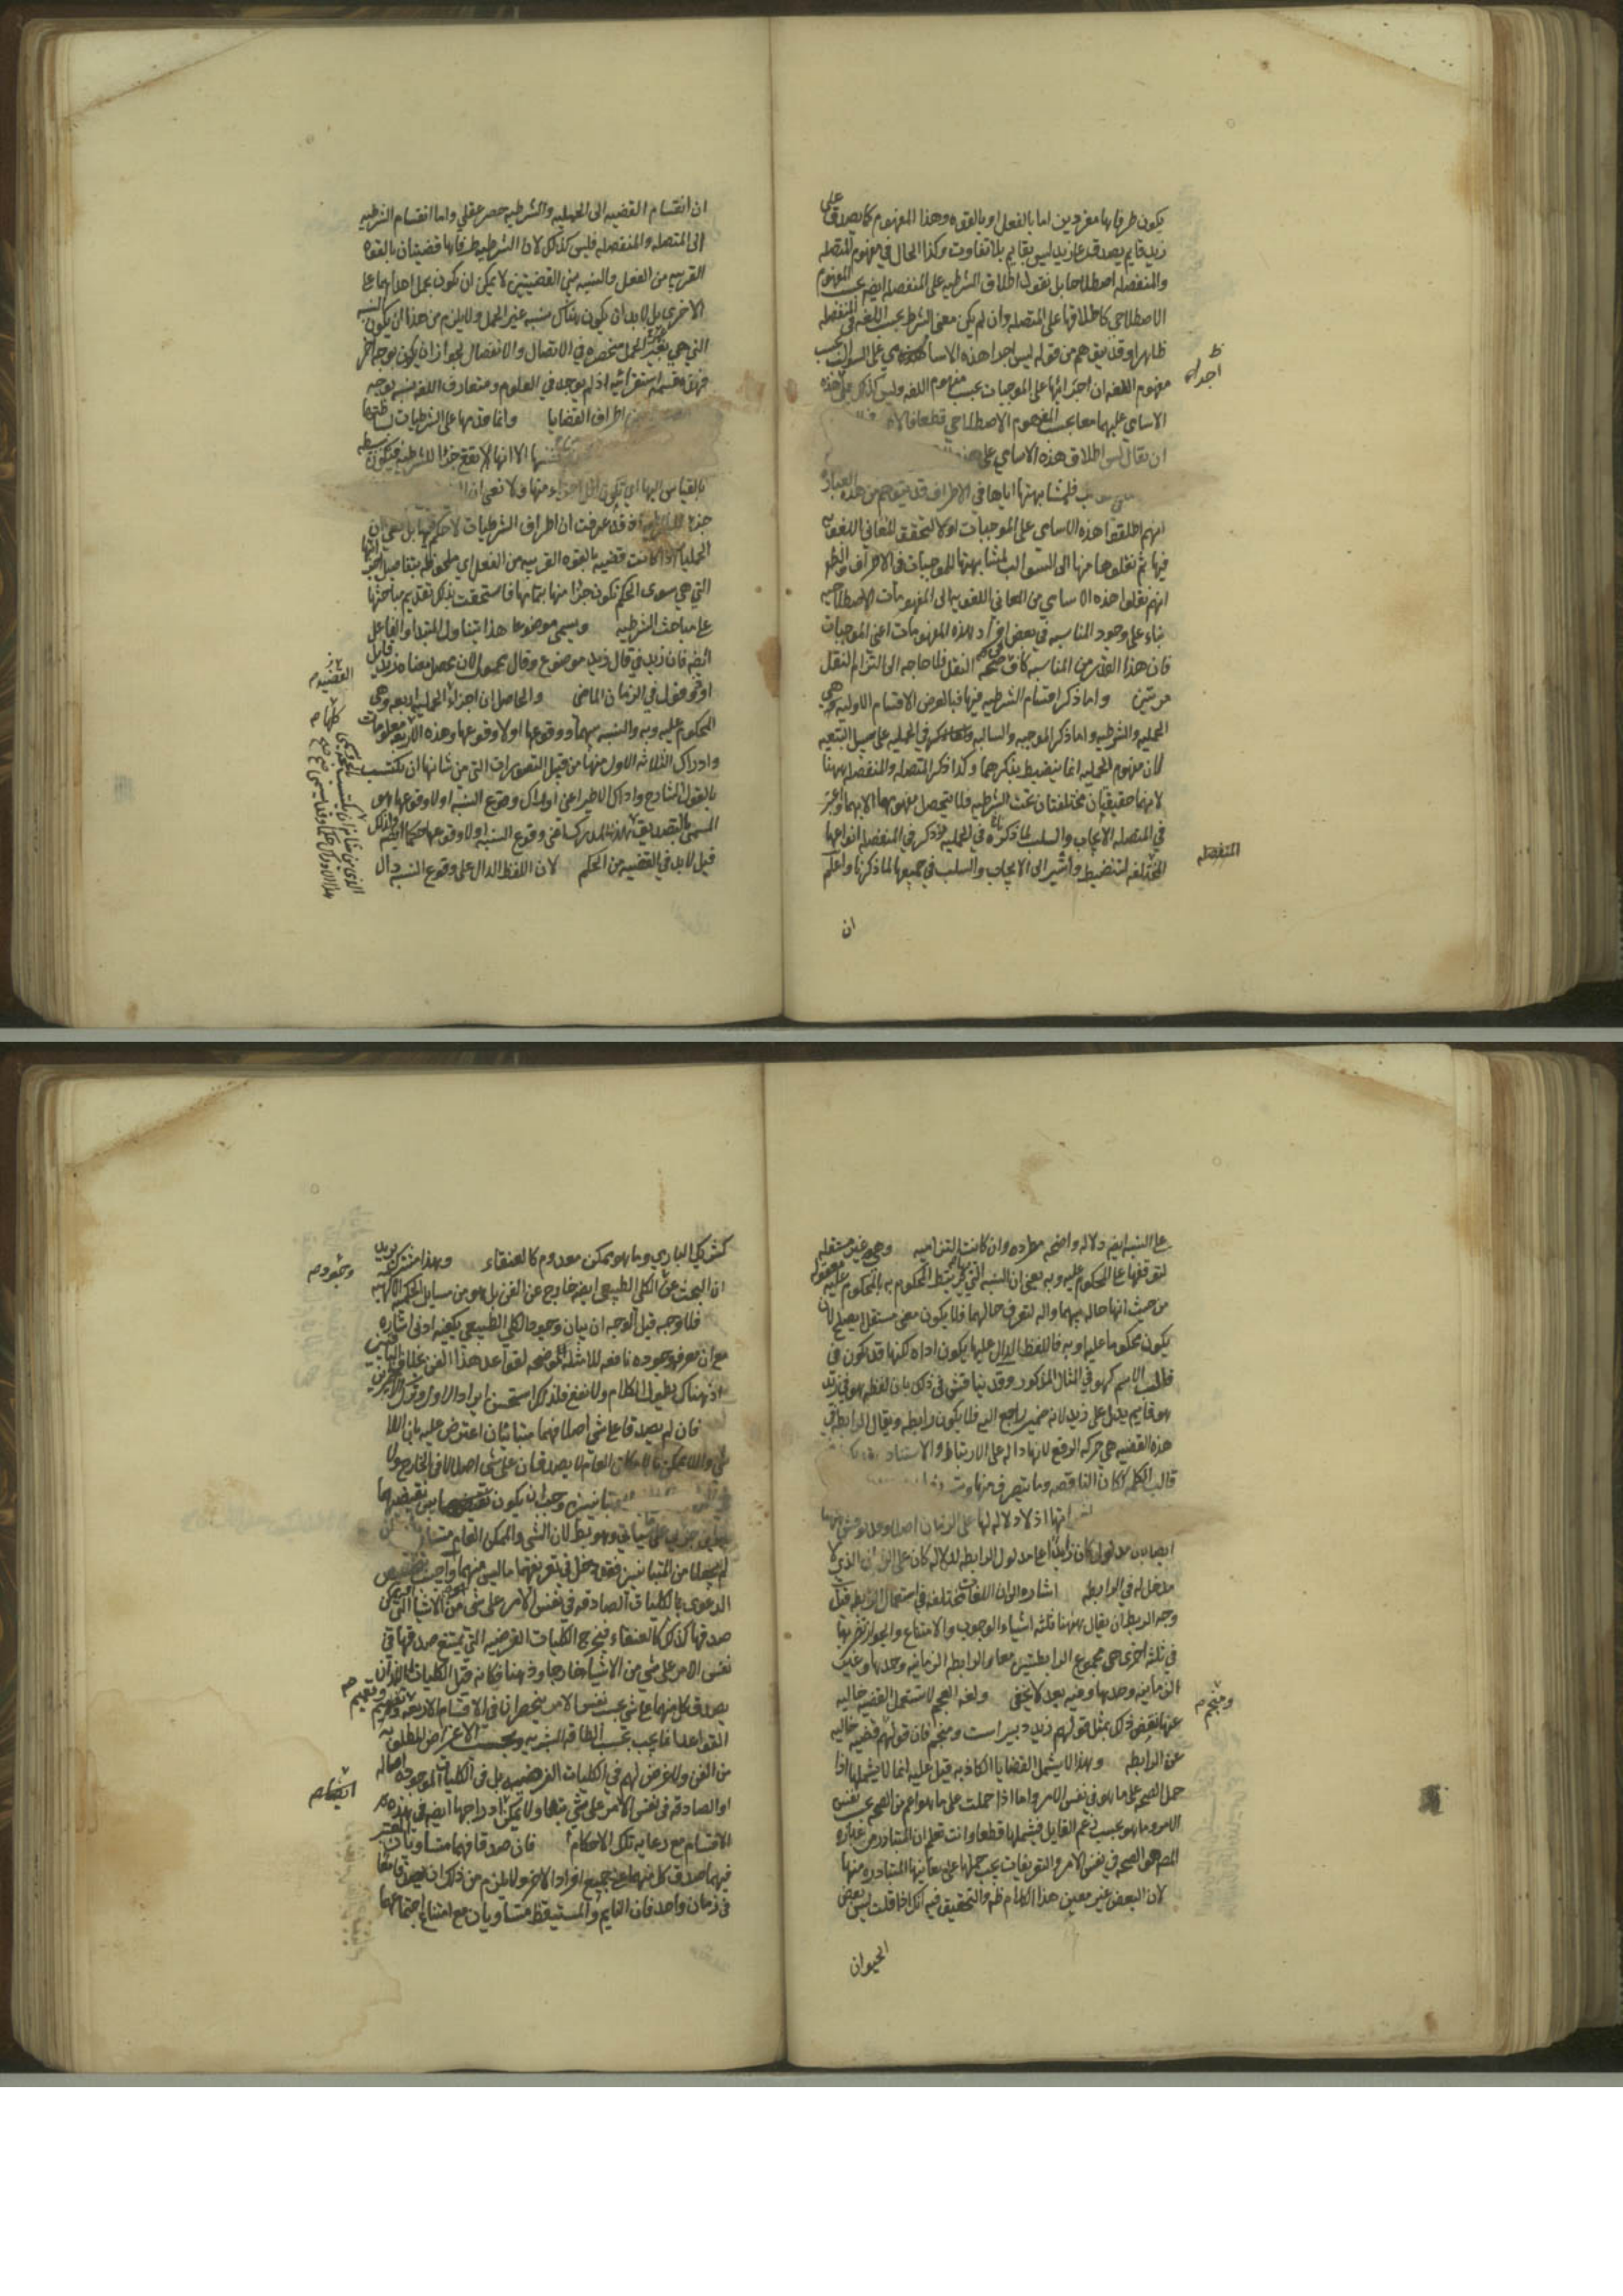 يكون طرفاها مفردين اما بالفعل او بالقوه وهذا المفهوم كما يصدق على
زيد قايم يصدق على زيد ليس بقايم بلا تفاوت وكذا الحال في مفهوم المتصله
والمنفصله اصطلاحا بل نقول اطلاق الشرطيه على المنفصله ايضا بحسب المفهوم
الاصطلاحي كاطلاقها على المتصله وان لم يكن معنى الشرط بحسب اللغه في المنفصله
ظاهرا وقد يتوهم من قوله ليس اجرا هذه الاسامي على السوالب بحسب
مفهوم اللغه ان اجرائها على الموجبات بحسب مفهوم اللغه وليس كذلك
الاسامي عليهما معا بحسب المفهوم الاصطلاحي قطعا فالا
ان يقال ليس اطلاق هذه الاسامي على هذه
فلمشابهتها اياها في الاطراف قد يتوهم من هذه العباره
انهم اطلقوا هذه الاسامي على الموجبات اولا لتحقق المعاني اللغويه
فيها ثم نقلوها منها الى السوالب لمشابهتها للموجبات في الاطراف
انهم نقلوا هذه الاسامي من المعاني اللغويه الى المفهومات الاصطلاحيه
بناء على وجود المناسبه في بعض افراد هذه المفهومات اعني الموجبات
فان هذا القدر من المناسبه كاف في صحه النقل فلا حاجه الى التزام النقل
مرتين واما ذكر اقسام الشرطيه فيها فبالعرض الاقسام الاوليه هي
الحمليه والشرطيه واما ذكر الموجبه والسالبه في الحمليه على سبيل التبعيه
لان مفهوم الحمليه انما ينضبط بذكرهما وكذا ذكر المتصله والمنفصله ههنا
لانهما حقيقتان مختلفتان تحت الشرطيه فلا يتحصل مفهومها الا بهما
في المتصله الايجاب والسلب لما ذكره في الحمليه وذكر في المنفصله انواعها
المختلفه لتنضبط واشير الى الايجاب والسلب في جميعها لما ذكرنا واعلم
المنفصله
ان
ان انقسام القضيه الى الحمليه والشرطيه حصر عقلي واما انقسام الشرطيه
الى المتصله والمنفصله فليس كذلك لان الشرطيه طرفاها قضيتان بالقوه
القريبه من الفعل والنسبه بين القضيتين لا يمكن ان يكون بحمل احداهما على
الاخرى بل لا بد ان يكون هناك نسبه غير الحمل ولا يلزم من هذا ان يكون النسبه
التي هي غير الحمل منحصره في الاتصال والانفصال لجواز ان يكون بوجه اخر
فهذه قسمه استقرائيه اذ لم يوجد في العلوم ومتعارف اللغه نسبه بوجه
اطراف القضايا وانما قدمها على الشرطيات لبساطتها
الا انها لا تقع جزا للشرطيه فيكون بسيطه
بالقياس اليها اي تكون اقل اجزاء منها ولا نعني ان
جزء للشرطيه اذ قد عرفت ان اطراف الشرطيات لا حكم فيها بل نعني ان
الحمليات اذا كانت قضيه بالقوه القريبه من الفعل اي ملحوظه بتفاصيل اجزائها
التي هي سوى الحكم تكون جزا منها بتمامها فاستحقت بذلك تقديم مباحثها
على مباحث الشرطيه ويسمى موضوعا هذا يتناول المبتدا والفاعل
ايضه فان زيد في قال زيد موضوع وقال محمول لان محصل معناه زيد قايل
او مقول في الزمان الماضي والحاصل ان اجزاء الحمليه اربعه وهي
المحكوم عليه وبه والنسبه بينهما ووقوعها اولا وقوعها وهذه الاربعه معلومات
وادراك الثلاثه الاول منها من قبيل التصورات التي من شانها ان تكتسب
بالقول الشارح وادراك الاخير اعني ادراك وقوع النسبه او لا وقوعها هو
المسمى بالتصديق وقوع النسبه او لا وقوعها حكما ايضه ولذلك
قيل لا بد في القضيه من الحكم لان اللفظ الدال على وقوع النسبه دال
على النسبه ايضه دلاله واضحه مطرده وان كانت التزاميه وهي غير مستقله
لتوقفها على المحكوم عليه وبه يعني ان النسبه التي يرتبط المحكوم به بالمحكوم عليه معقوله
من حيث انها حاله بينهما واله لتعرف حالهما فلا يكون معنى مستقلا يصلح لان
يكون محكوما عليه او به فاللفظ الدال عليها يكون اداه لكنها قد تكون في
قالب الاسم كهو في المثال المذكور وقد يناقش في ذلك بان لفظه هو في زيد
هو قايم يدل على زيد لانه ضمير راجع اليه فلا يكون رابطه ويقال الرابطه في
هذه القضيه هي حركه الرفع لانها داله على الارتباط والاسناد
قالب الكلمه ككان الناقصه وما يتصرف منها
انها اذ لا دلاله لها على الزمان اصلا
ايضا بان مدلول كان زايد على مدلول الرابطه لدلاله كان على الزمان الذي لا
مدخل له في الرابطه اشاره الى ان اللغات مختلفه في استعمال الرابطه قيل
وجه الربط ان يقال ههنا ثلثه اشياء الوجوب والامتناع والجواز تضربها
في ثلثه اخرى هي مجموع الرابطتين معا والرابطه الزمانيه وحدها وغير
الزمانيه وحدها وفيه بعد لا يخفى ولغه العجم لا تستعمل القضيه خاليه
عنها نقض ذلك بمثل قولهم زيد دبير است ومنجم فان قولهم قضيه خاليه
عن الرابطه وبهذا لا يشمل القضايا الكاذبه قيل عليه انما لا يشملها اذا
حمل الصحه على ما هو في نفس الامر واما اذا حملت على ما هو اعم من الصحه بحسب نفس
الامر وما هو بحسب زعم القايل فيشملها قطعا وانت تعلم ان المتبادر من عباره
المص هو الصحه في نفس الامر والتعريفات يجب حملها على معانيها المتبادره منها
لان البعض غير معين هذا الكلام ظه والتحقيق فيه انك اذا قلت ليس بعض
ومنجم
الحيوان
كشريك الباري وما هو ممكن معدوم كالعنقاء وبهذا مشترك يريد
ان البحث عن الكلي الطبيعي ايضه خارج عن الفن بل هو من مسايل الحكمه الالهيه
فلا وجه قيل الوجه ان بيان وجود الكلي الطبيعي يكفيه ادنى اشاره
مع ان معرفه وجوده نافعه للامثله الموضحه لقواعد هذا الفن بخلاف الباقيين
اذ هناك يطول الكلام ولا نفع فلذلك استحسن ايراد الاول وترك الاخرين
فان لم يصدقا على شي اصلا فهما متباينان اعترض عليه بان اللا
شي واللا ممكن بالامكان العام لا يصدقان على شي اصلا لا في الخارج ولا
متباينين وجب ان يكون بين نقيضيهما
وهو بط لان الشي والممكن العام
لم يجعلا من المتباينين فقد دخل في تعريفهما ما ليس منهما واجيب بتخصيص
الدعوى بالكليات الصادقه في نفس الامر على شي من الاشيا او يمكن
صدقها كذلك كالعنقاء فيخرج الكليات الفرضيه التي يمتنع صدقها في
نفس الامر على شي من الاشيا خارجا وذهنا فكانه قيل الكليات اللذان
يصدق كل منهما على شي بحسب نفس الامر ينحصران في الاقسام الاربعه وتعميم
القواعد انما يجب بحسب الطاقه البشريه وبحسب الاغراض المطلوبه
من الفن ولا غرض لهم في الكليات الفرضيه بل في الكليات الموجوده اصاله
او الصادقه في نفس الامر على شي منها ولا يمكن ادراجها ايضه في هذه
الاقسام مع رعايه تلك الاحكام فان صدقا فهما متساويان المعتبر
فيهما صدق كل منهما على جميع افراد الاخر ولا يلزم من ذلك ان يصدقا معا
في زمان واحد فان النايم والمستيقظ متساويان مع امتناع اجتماعهما